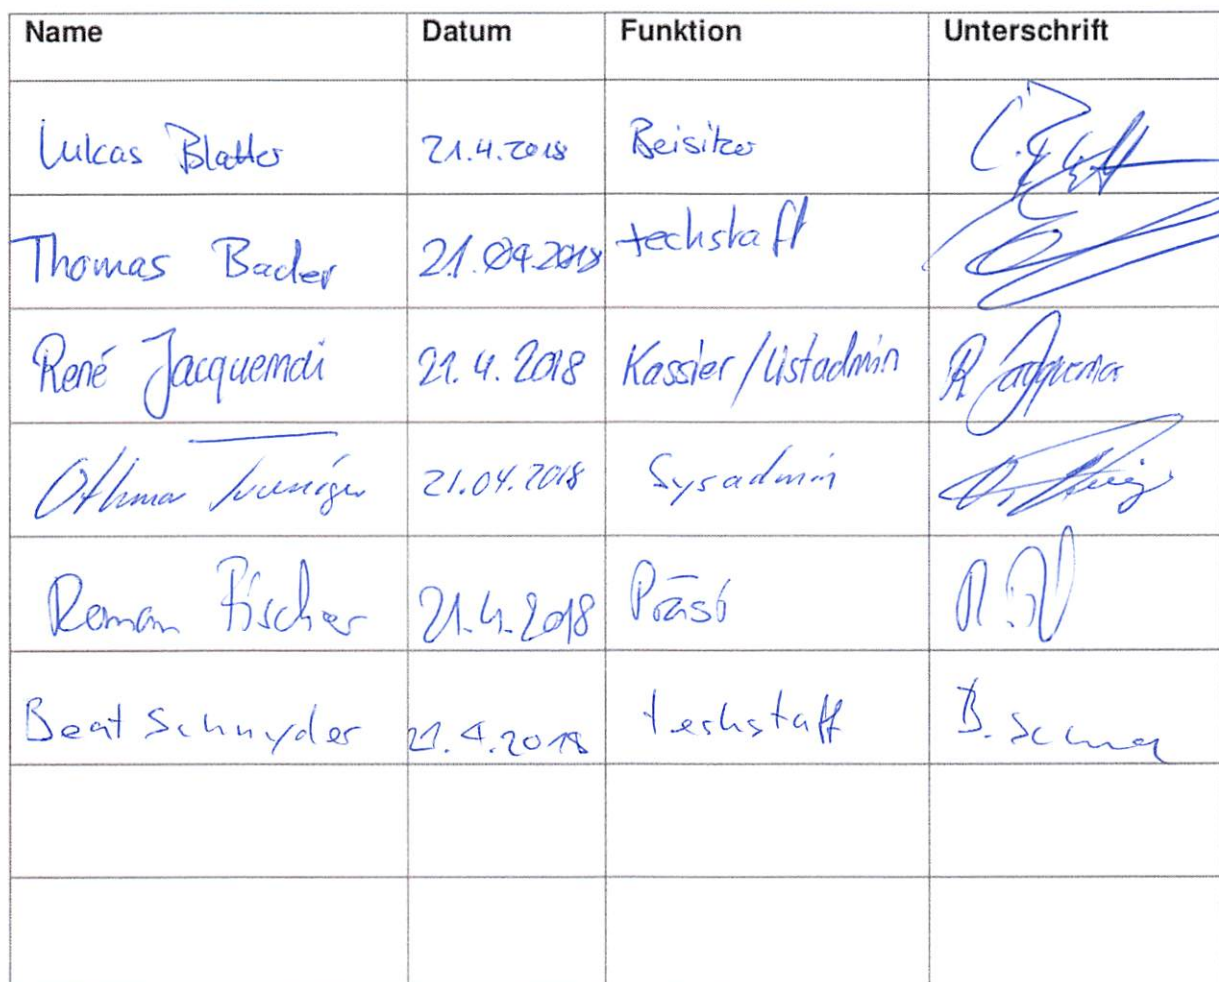 Name Datum Funktion Unterschrift
Lukas Blatter 21.4.2018 Beisitzer
Thomas Bader 21.04.2018 techstaff
René Jacquemai 21.4.2018 Kassier/Listadmin R Jacquema
Othmar 21.04.2018 Sysadmin
Roman Fischer 21.4.2018 Präsi
Beat Schnyder 21.4.2018 techstaff B.